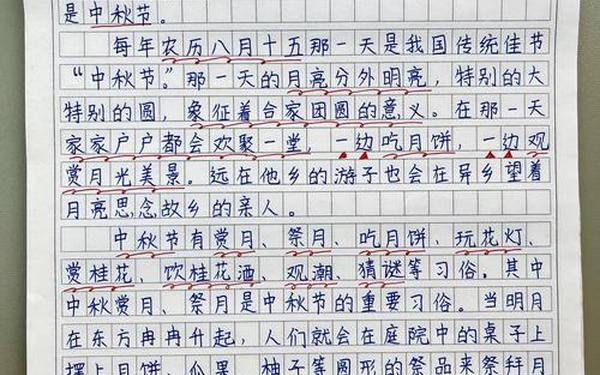 是中秋节。
每年农历八月十五那一天是我国传统佳节
“中秋节。”那一天的月亮分外明亮，特别的大
特别的圆，象征着合家团圆的意义。在那一天
家家户户都会欢聚一堂，一边吃月饼，一边观
赏月光美景。远在他乡的游子也会在异乡望着
月亮思念故乡的亲人。
中秋节有赏月、祭月、吃月饼、玩花灯、
赏桂花、饮桂花酒、观潮、猜谜等习俗。其中
中秋赏月、祭月是中秋节的重要习俗。当明月
在东方冉冉升起，人们就会在庭院中的桌子上
摆上月饼、瓜果、柚子等圆形的祭品来祭拜月